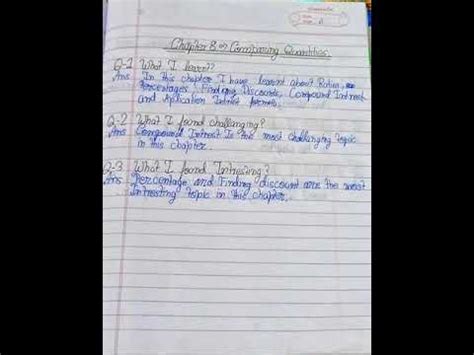 Chapter 8 Comparing Quantities
Q-1 What I learnt??
Ans In this chapter I have learnt about Ratios,
Percentages, Finding Discounts, Compound Intrest
and Aplication Intrest
Q-2 What I found challanging?
Ans Compound Intrest Is the most challanging topic
in this chapter.
Q-3 What I found Intresting?
Ans Percentage and Finding discount are the most
Intresting topic in this chapter.